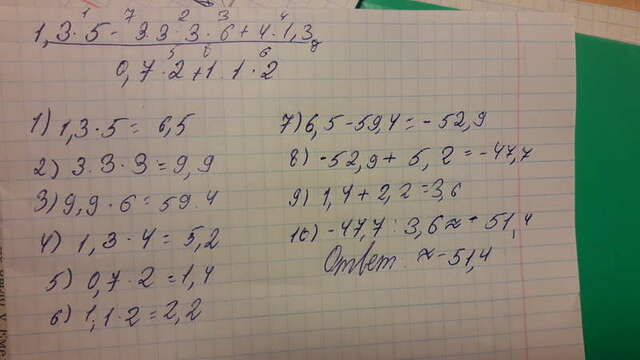 1,3·5-3.3·3·6+4·1,3
0,7·2+1.1·2
1) 1,3·5=6,5
2) 3.3·3=9,9
3) 9,9·6=59.4
4) 1,3·4=5,2
5) 0,7·2=1,4
6) 1,1·2=2,2
7) 6,5-59,4=-52,9
8) -52,9+5,2=-47,7
9) 1,4+2,2=3,6
10) -47,7:3,6≈-51,4
Ответ: ≈-51,4